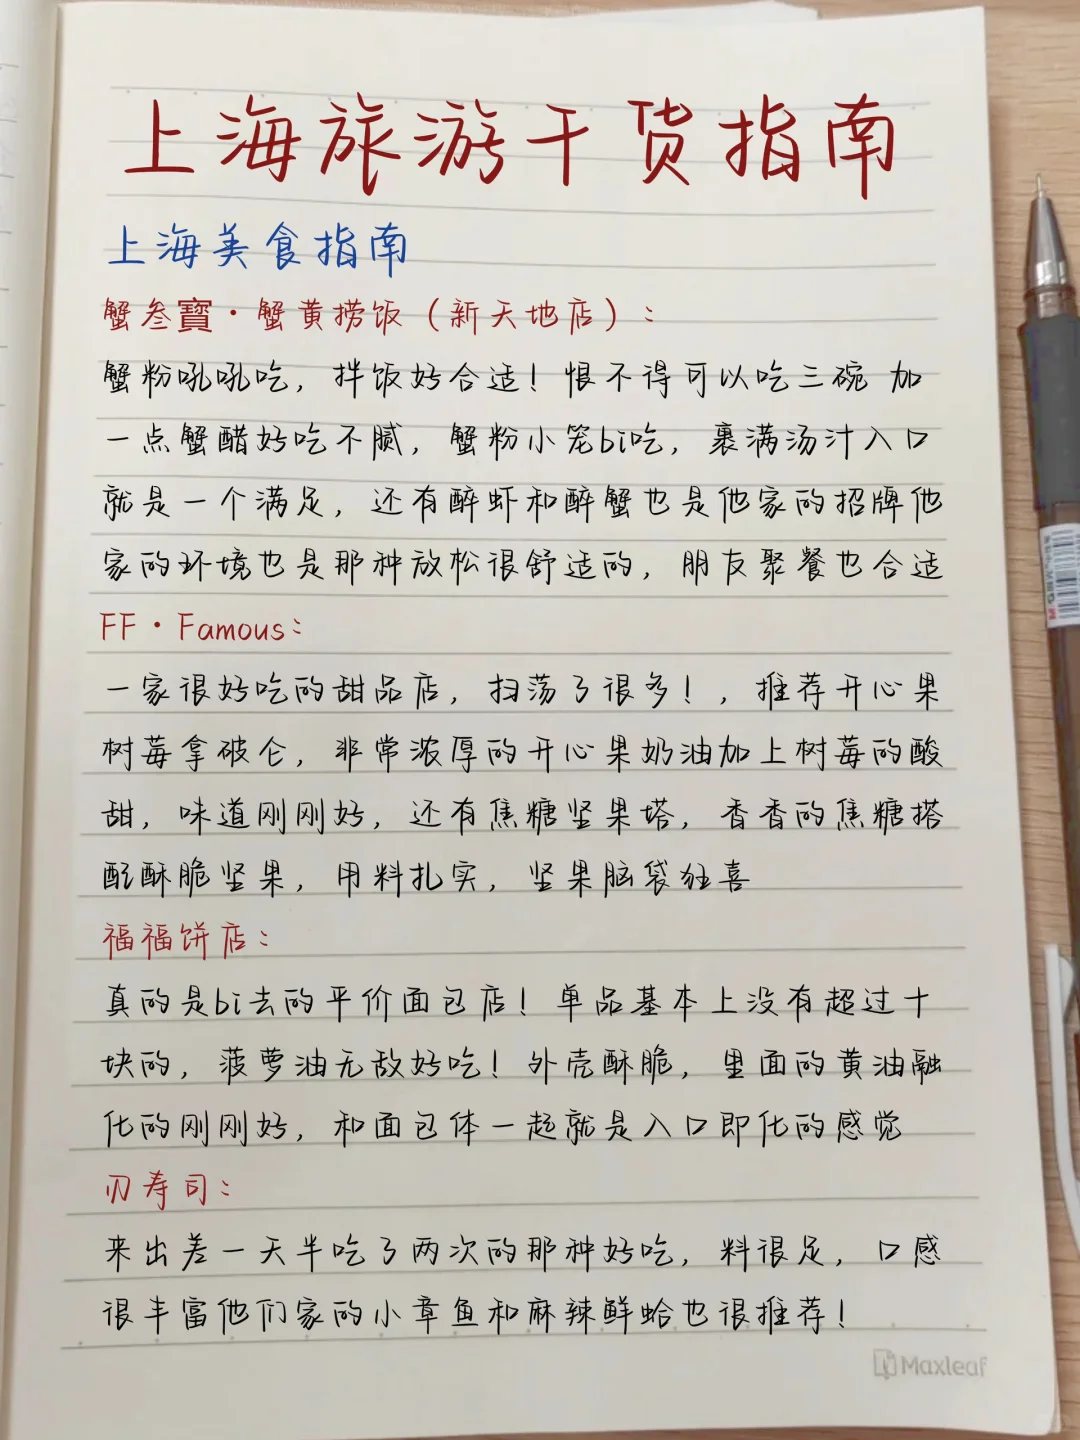 上海旅游干货指南
上海美食指南
蟹叁寳·蟹黄捞饭（新天地店）：
蟹粉吼吼吃，拌饭好合适！恨不得可以吃三碗 加
一点蟹醋好吃不腻，蟹粉小笼bi吃，裹满汤汁入口
就是一个满足，还有醉虾和醉蟹也是他家的招牌他
家的环境也是那种放松很舒适的，朋友聚餐也合适
FF·Famous：
一家很好吃的甜品店，扫荡了很多！，推荐开心果
树莓拿破仑，非常浓厚的开心果奶油加上树莓的酸
甜，味道刚刚好，还有焦糖坚果塔，香香的焦糖搭
配酥脆坚果，用料扎实，坚果脑袋狂喜
福福饼店：
真的是bi去的平价面包店！单品基本上没有超过十
块的，菠萝油无敌好吃！外壳酥脆，里面的黄油融
化的刚刚好，和面包体一起就是入口即化的感觉
刃寿司：
来出差一天半吃了两次的那种好吃，料很足，口感
很丰富他们家的小章鱼和麻辣鲜蛤也很推荐！
Maxleaf